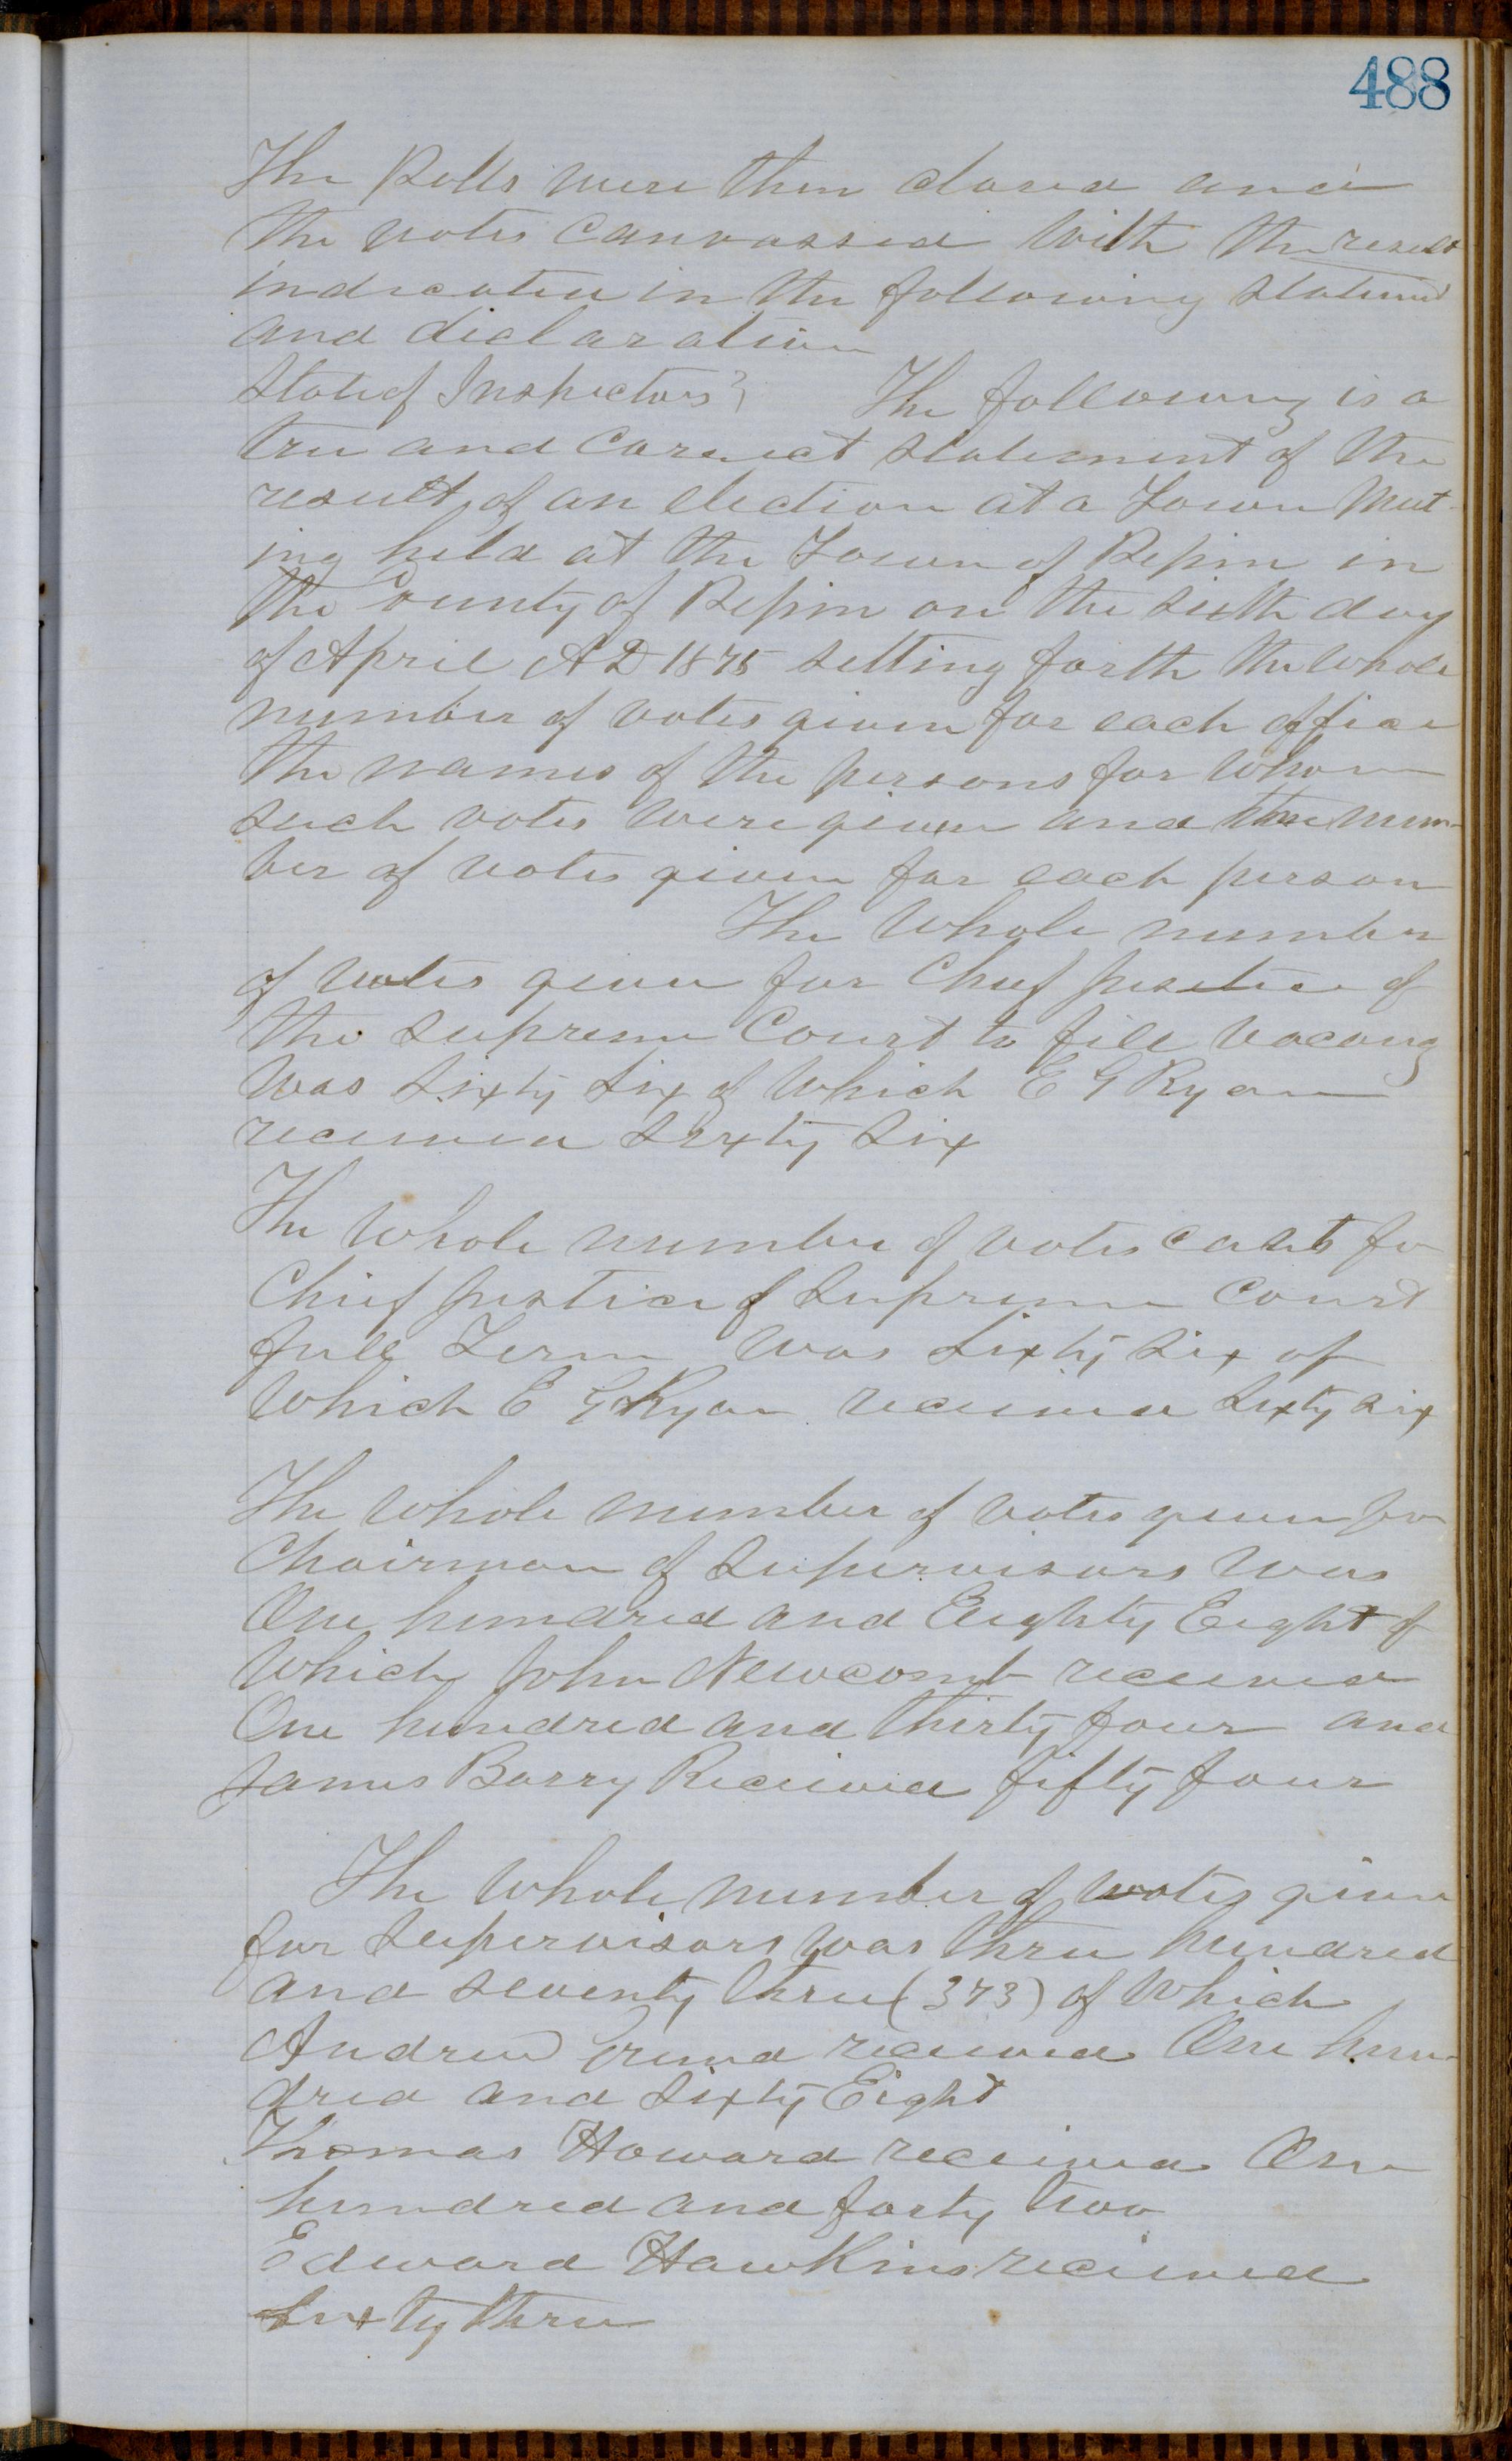 488
The Polls were then closed and
the votes canvassed with the result
indicated in the following statement
and declaration
State of Inspectors } The following is a
true and correct statement of the
result of an election at a Town Meet-
ing held at the Town of Pepin in
the County of Pepin on the sixth day
of April AD 1875 setting forth the whole
number of votes given for each office
the names of the persons for whom
such votes were given and the num-
ber of votes given for each person
The whole number
of votes given for Chief Justice of
the Supreme Court to fill vacancy
was Sixty Six of which E G Ryan
received Sixty Six
The whole number of votes cast for
Chief Justice of Supreme Court
full Term was Sixty Six of
which E G Ryan received Sixty six
The whole number of votes given for
Chairman of Supervisors was
One hundred and Eighty Eight of
which John Newcomb received
One hundred and thirty four and
James Barry Received fifty four
The whole number of votes given
for Supervisors was three hundred
and seventy three (373) of which
Andrew received One hun-
dred and Sixty Eight
Thomas Howard received One
hundred and forty two
Edward Hawkins received
Sixty three